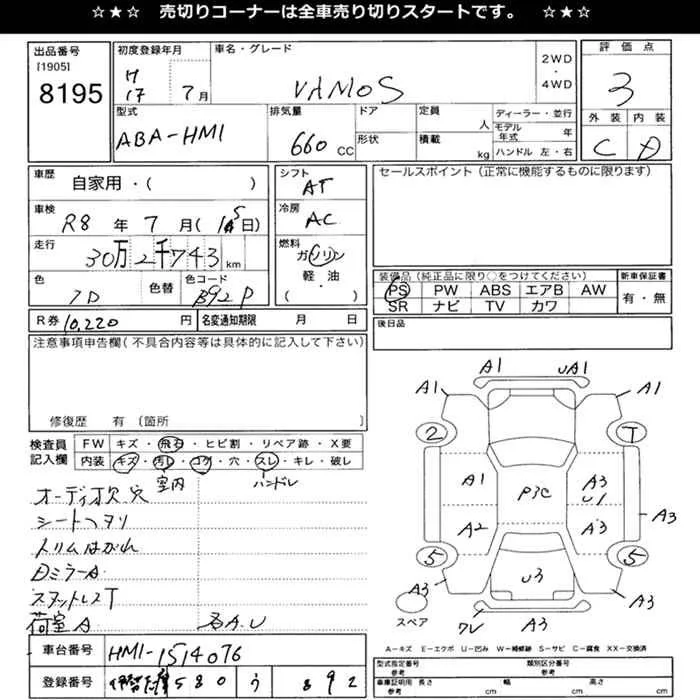 ☆★☆ 売切りコーナーは全車売り切りスタートです。 ☆★☆
出品番号 初度登録年月 車名・グレード 2WD ・ 4WD 評価点
[1905]
8195 H17 7月 VAMOS 3
型式 排気量 ドア 定員 人 ディーラー・並行 外装 内装
ABA-HM1 660 CC 形状 積載 kg モデル年式 年 C D
ハンドル 左・右
車歴 自家用・( ) シフト AT セールスポイント(正常に機能するものに限ります)
車検 R8 年 7 月( 日) 冷房 AC
走行 30万2千743 km 燃料 ガソリン
色 色替 色コード 軽・油 装備品(純正品に限り○をつけてください) 新車保証書
B92P ( ) PS PW ABS エアB AW 有・無
SR ナビ TV カワ
R券 10,220 円 名変通知期限 月 日 後日品
注意事項申告欄(不具合内容等は具体的に記入して下さい)
修復歴 有 〔箇所 〕
検査員記入欄 FW キズ・飛石・ヒビ割・リペア跡・X要
内装 キズ・汚レ・コゲ・穴・スレ・キレ・破レ
室内 ハンドル
オーディオ欠 穴
シートヘタリ
トリムはがれ
DミラーA
荷室A
A.U
車台番号 HM1-1514076
登録番号 580 う 892
A1 UA1
A1 A1
2 T
A1 P3C A3 U1
A2 A3 A3
5 5
A3 U3 A3
スペア ワレ A3
A=キズ E=エクボ U=凹み W=補修跡 S=サビ C=腐食 XX=交換済
型式指定番号 参考 類別区分番号 参考
車庫証明用 参考 長さ cm 幅 cm 高さ cm